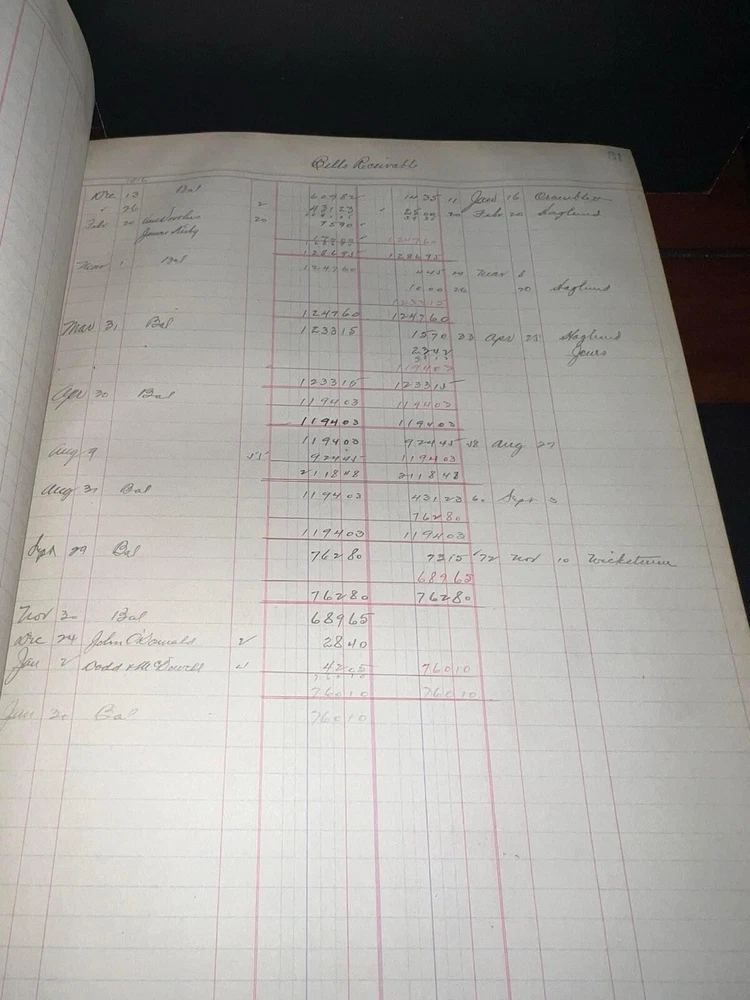 Bills Receivable 31
Dec 13 Bal 60982 1435 11 Jan 16
" 26 2 43123 20 Feb 20 Haglund
Feb 20 20 7590
James
124760
128695 128695
Mar 1 Bal 124760 445 24 Mar 8
1000 20 20 Haglund
123315
124760 124760
Mar 31 Bal 123315 1570 23 Apr 25 Haglund
2342 Yours
119403
123315 123315
Apr 30 Bal 119403 119403
119403 119403
119403 92445 58 Aug 27
Aug 9 55 92445 119403
211848 211848
Aug 31 Bal 119403 43123 60 Sept 3
76280
119403 119403
Sept 29 Bal 76280 7315 72 Nov 10 Wickstrum
68965
76280 76280
Nov 30 Bal 68965
Dec 24 John O'Donald 2 2840
Jan 2 Dodd & McDowell 4205 76010
76010 76010
Jan 30 Bal 76010